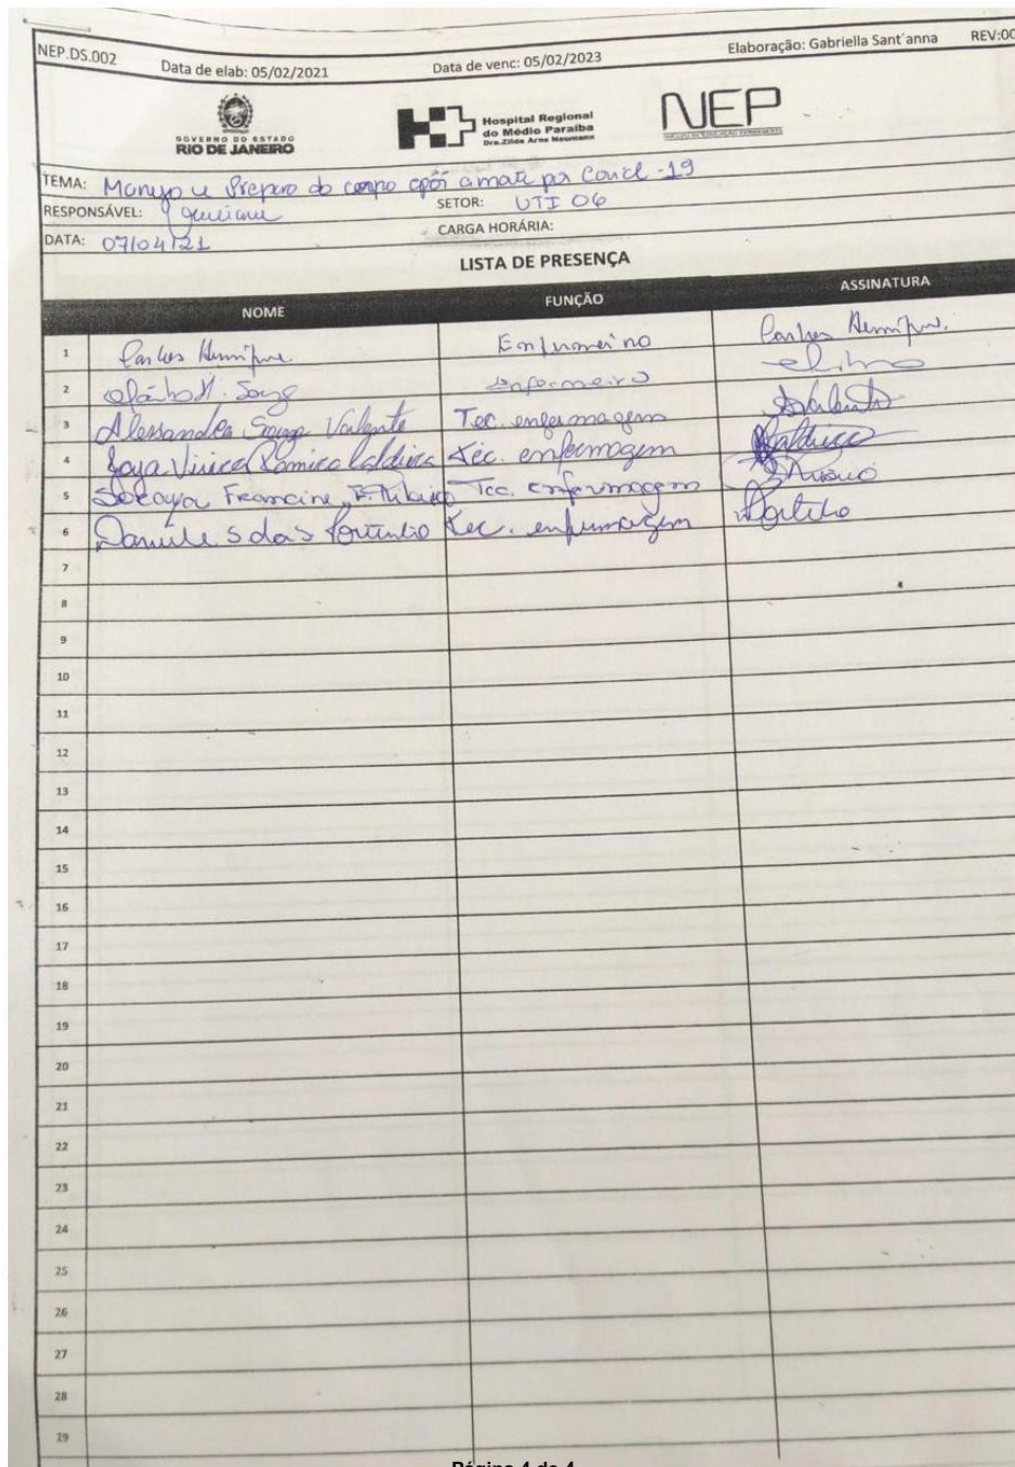 NEP.DS.002 Data de elab: 05/02/2021 Data de venc: 05/02/2023 Elaboração: Gabriella Sant´anna REV:00
GOVERNO DO ESTADO
RIO DE JANEIRO
Hospital Regional
do Médio Paraíba
Dra.Zilda Arns Neumann
NEP
NÚCLEO DE EDUCAÇÃO PERMANENTE
TEMA: Manejo e Preparo do corpo após a morte por Covid-19
RESPONSÁVEL: SETOR: UTI 06
DATA: 07/04/21 CARGA HORÁRIA:
LISTA DE PRESENÇA
NOME FUNÇÃO ASSINATURA
1 Carlos Henrique Enfermeiro Carlos Henrique.
2 Souza Enfermeiro
3 Alessandra Souza Valente Tec. enfermagem Valente
4 Ramiro Caldeira Tec. enfermagem Caldeira
5 Soraya Francine Tec. enfermagem
6 Daniele S das Tec. enfermagem
7
8
9
10
11
12
13
14
15
16
17
18
19
20
21
22
23
24
25
26
27
28
29
Página 4 de 4